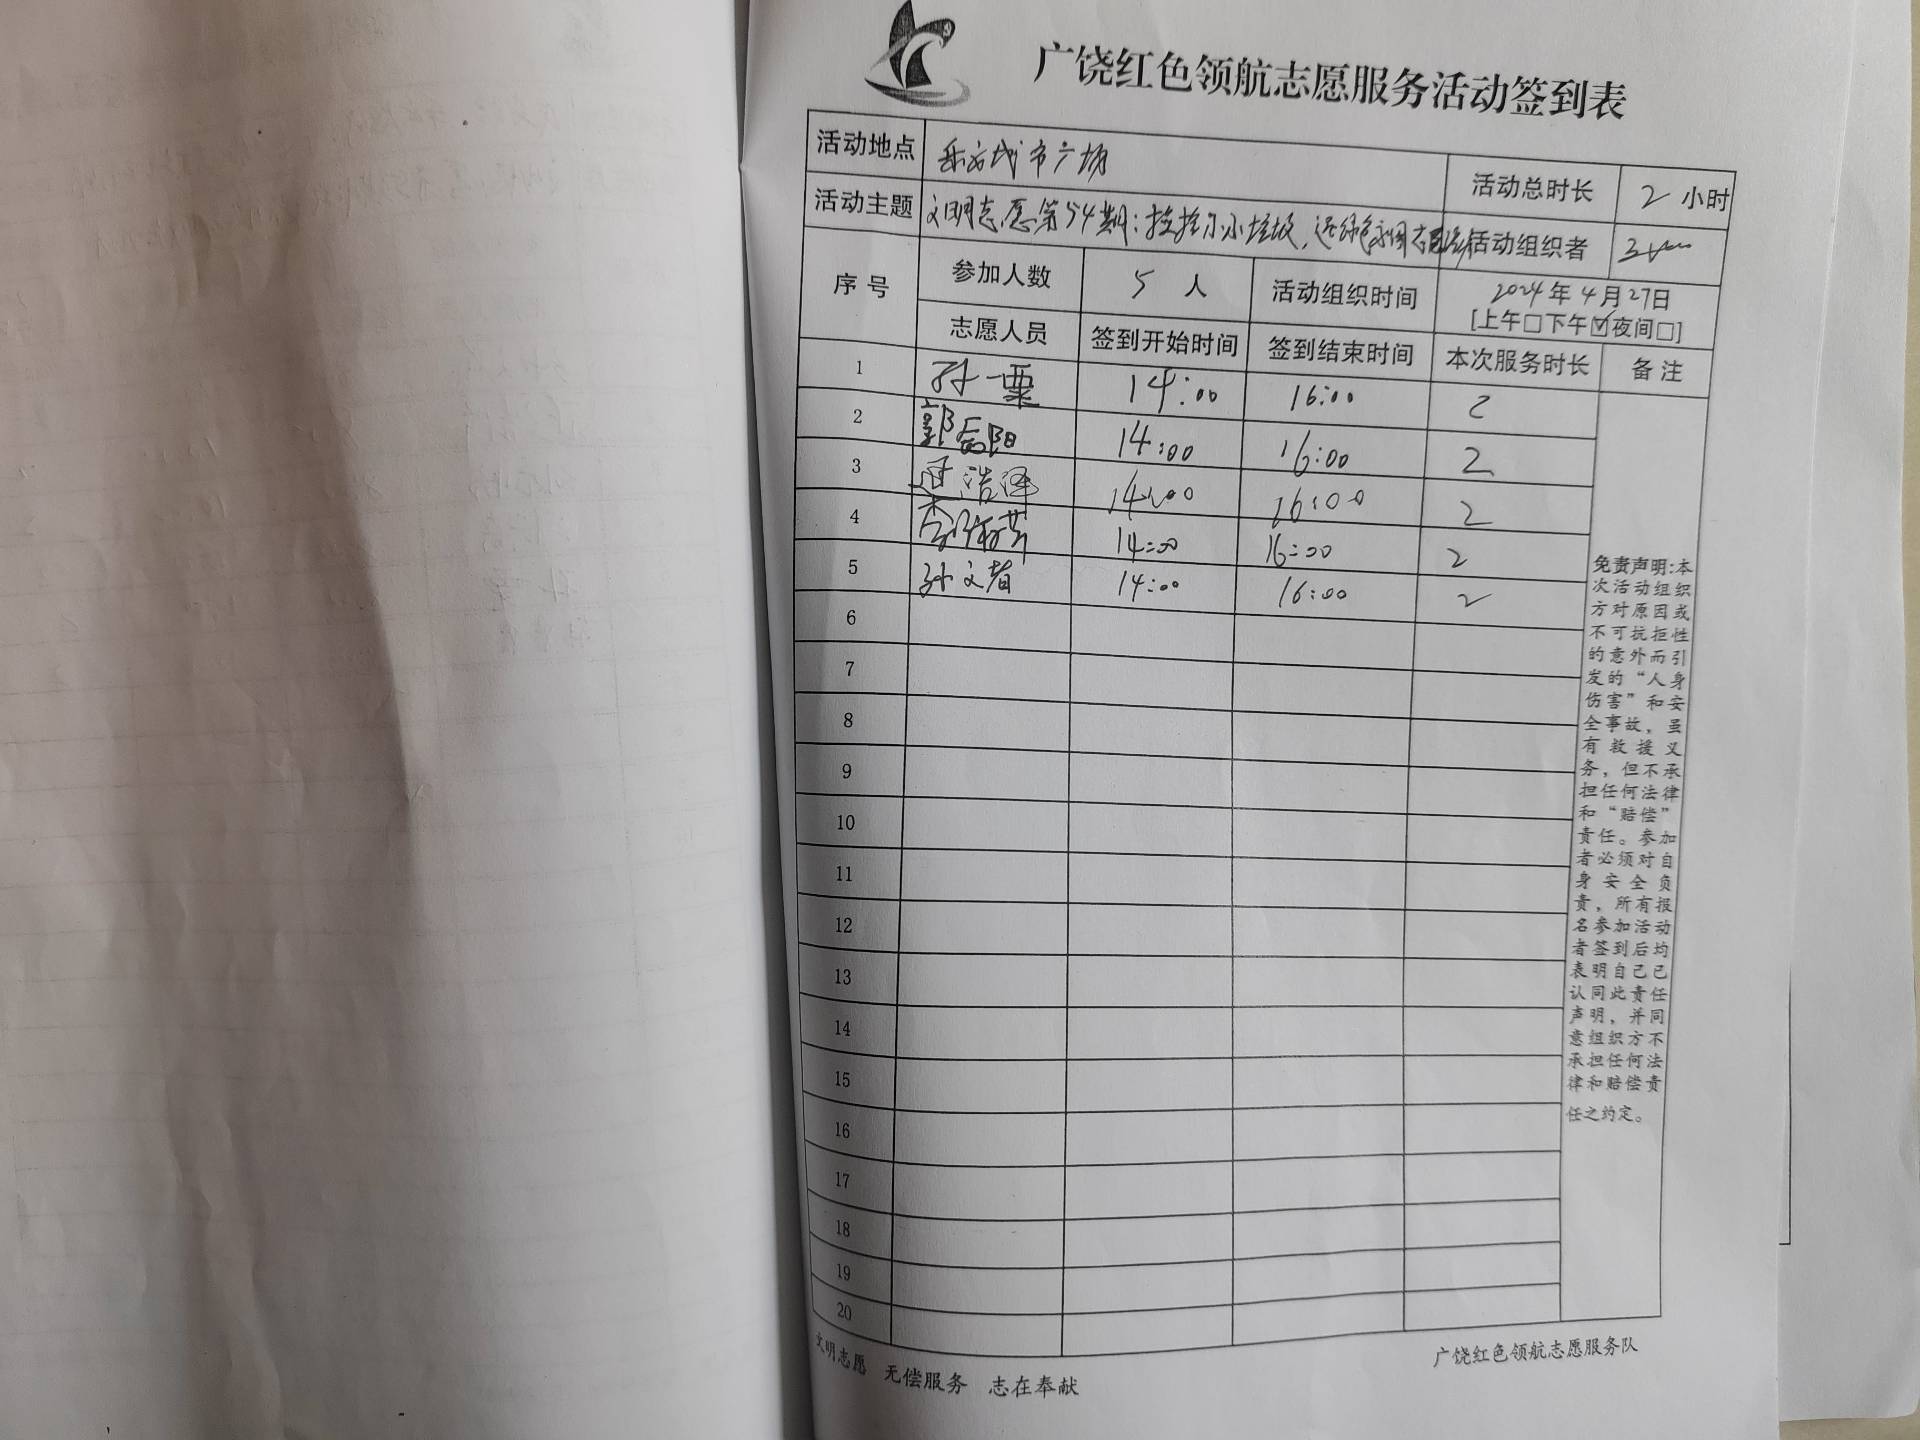 广饶红色领航志愿服务活动签到表
活动地点 乐安城市广场 活动总时长 2 小时
活动主题 文明志愿第54期:捡捡小小垃圾, 活动组织者
序号 参加人数 5 人 活动组织时间 2024年4月27日
[上午□下午☑夜间□]
志愿人员 签到开始时间 签到结束时间 本次服务时长 备注
1 孙一粟 14:00 16:00 2
2 郭岳阳 14:00 16:00 2
3 浩泽 14:00 16:00 2
4 14:00 16:00 2
5 孙文 14:00 16:00 2
6
7
8
9
10
11
12
13
14
15
16
17
18
19
20
免责声明:本
次活动组织
方对原因或
不可抗拒性
的意外而引
发的“人身
伤害”和安
全事故，虽
有救援义
务，但不承
担任何法律
和“赔偿”
责任。参加
者必须对自
身安全负
责，所有报
名参加活动
者签到后均
表明自己已
认同此责任
声明，并同
意组织方不
承担任何法
律和赔偿责
任之约定。
文明志愿 无偿服务 志在奉献
广饶红色领航志愿服务队